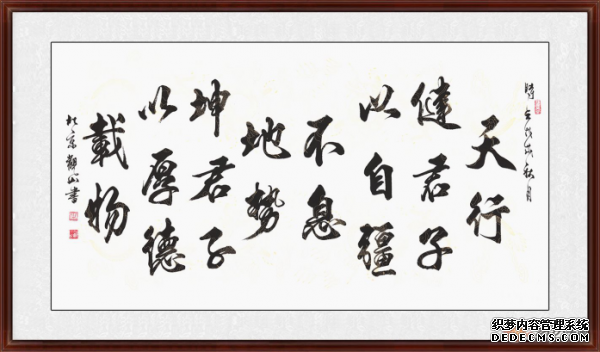 時在戊戌秋月
天行
健君子
以自彊
不息
地勢
坤君子
以厚德
載物
北京觀山書
织梦内容管理系统
DEDECMS.COM